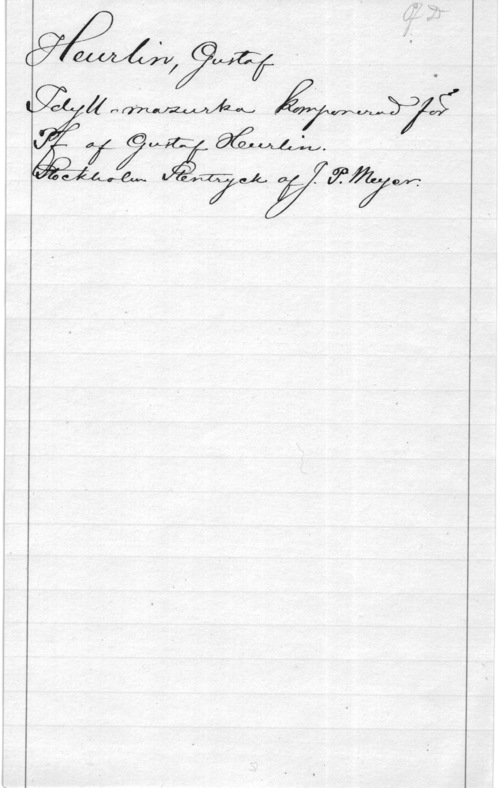 Heurlin, Gustaf
Idyll-mazurka komponerad för
Pf. af Gustaf Heurlin.
Stockholm Stentryck af J. P. Meyer.